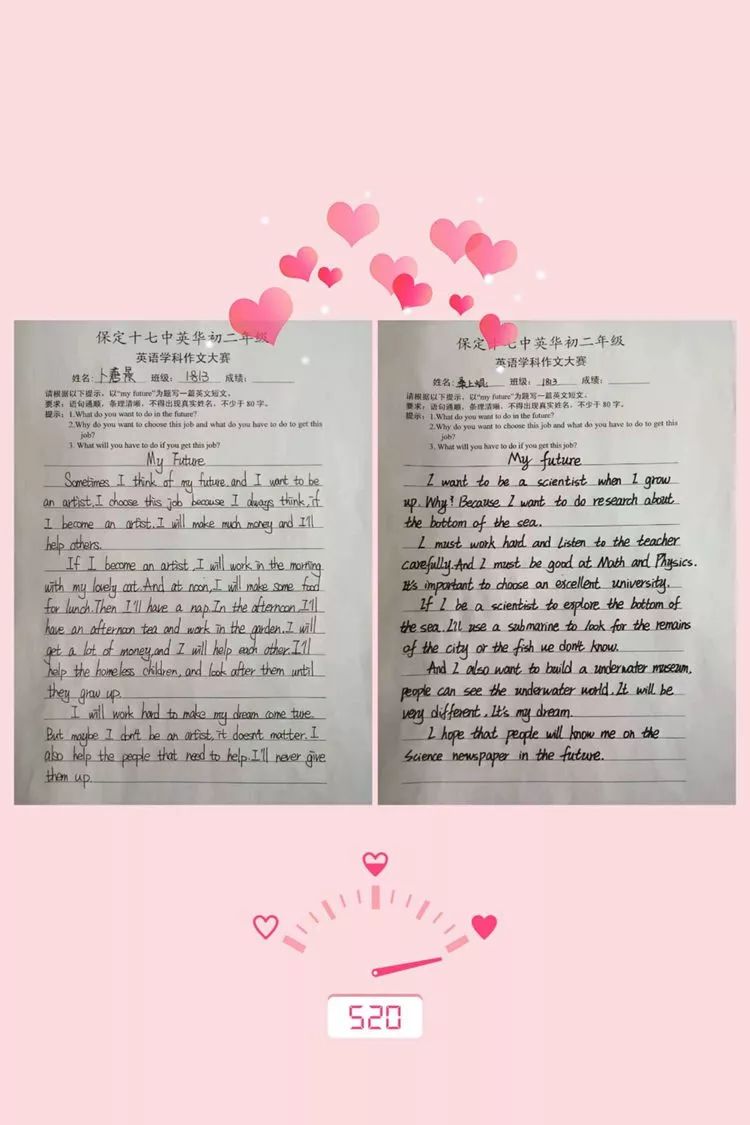 保定十七中英华初二年级
英语学科作文大赛
姓名: 卜惠景 班级: 1813 成绩:
请根据以下提示，以"my future"为题写一篇英文短文。
要求：语句通顺，条理清晰，不得出现真实姓名，不少于 80 字。
提示：1.What do you want to do in the future?
2.Why do you want to choose this job and what do you have to do to get this
job?
3. What will you have to do if you get this job?
My Future
Sometimes I think of my future.and I want to be
an artist,I choose this job because I always think,if
I become an artist.I will make much money and I'll
help others.
If I become an artist,I will work in the morning
with my lovely cat.And at noon,I will make some food
for lunch.Then I'll have a nap.In the afternoon,I'll
have an afternoon tea and work in the garden.I will
get a lot of money,and I will help each other.I'll
help the homeless children,and look after them until
they grow up.
I will work hard to make my dream come ture.
But maybe I don't be an artist,it doesn't matter.I
also help the people that need to help.I'll never give
them up.
保定十七中英华初二年级
英语学科作文大赛
姓名: 班级: 1813 成绩:
请根据以下提示，以"my future"为题写一篇英文短文。
要求：语句通顺，条理清晰，不得出现真实姓名，不少于 80 字。
提示：1.What do you want to do in the future?
2.Why do you want to choose this job and what do you have to do to get this
job?
3. What will you have to do if you get this job?
My future
I want to be a scientist when I grow
up. Why? Because I want to do research about
the bottom of the sea.
I must work hard and Listen to the teacher
carefully.And I must be good at Math and Physics.
It's important to choose an excellent university.
If I be a scientist to explore the bottom of
the sea. I'll use a submarine to look for the remains
of the city or the fish we don't know.
And I also want to build a underwater museum.
people can see the underwater world. It will be
very different. It's my dream.
I hope that people will know me on the
Science newspaper in the future.
520